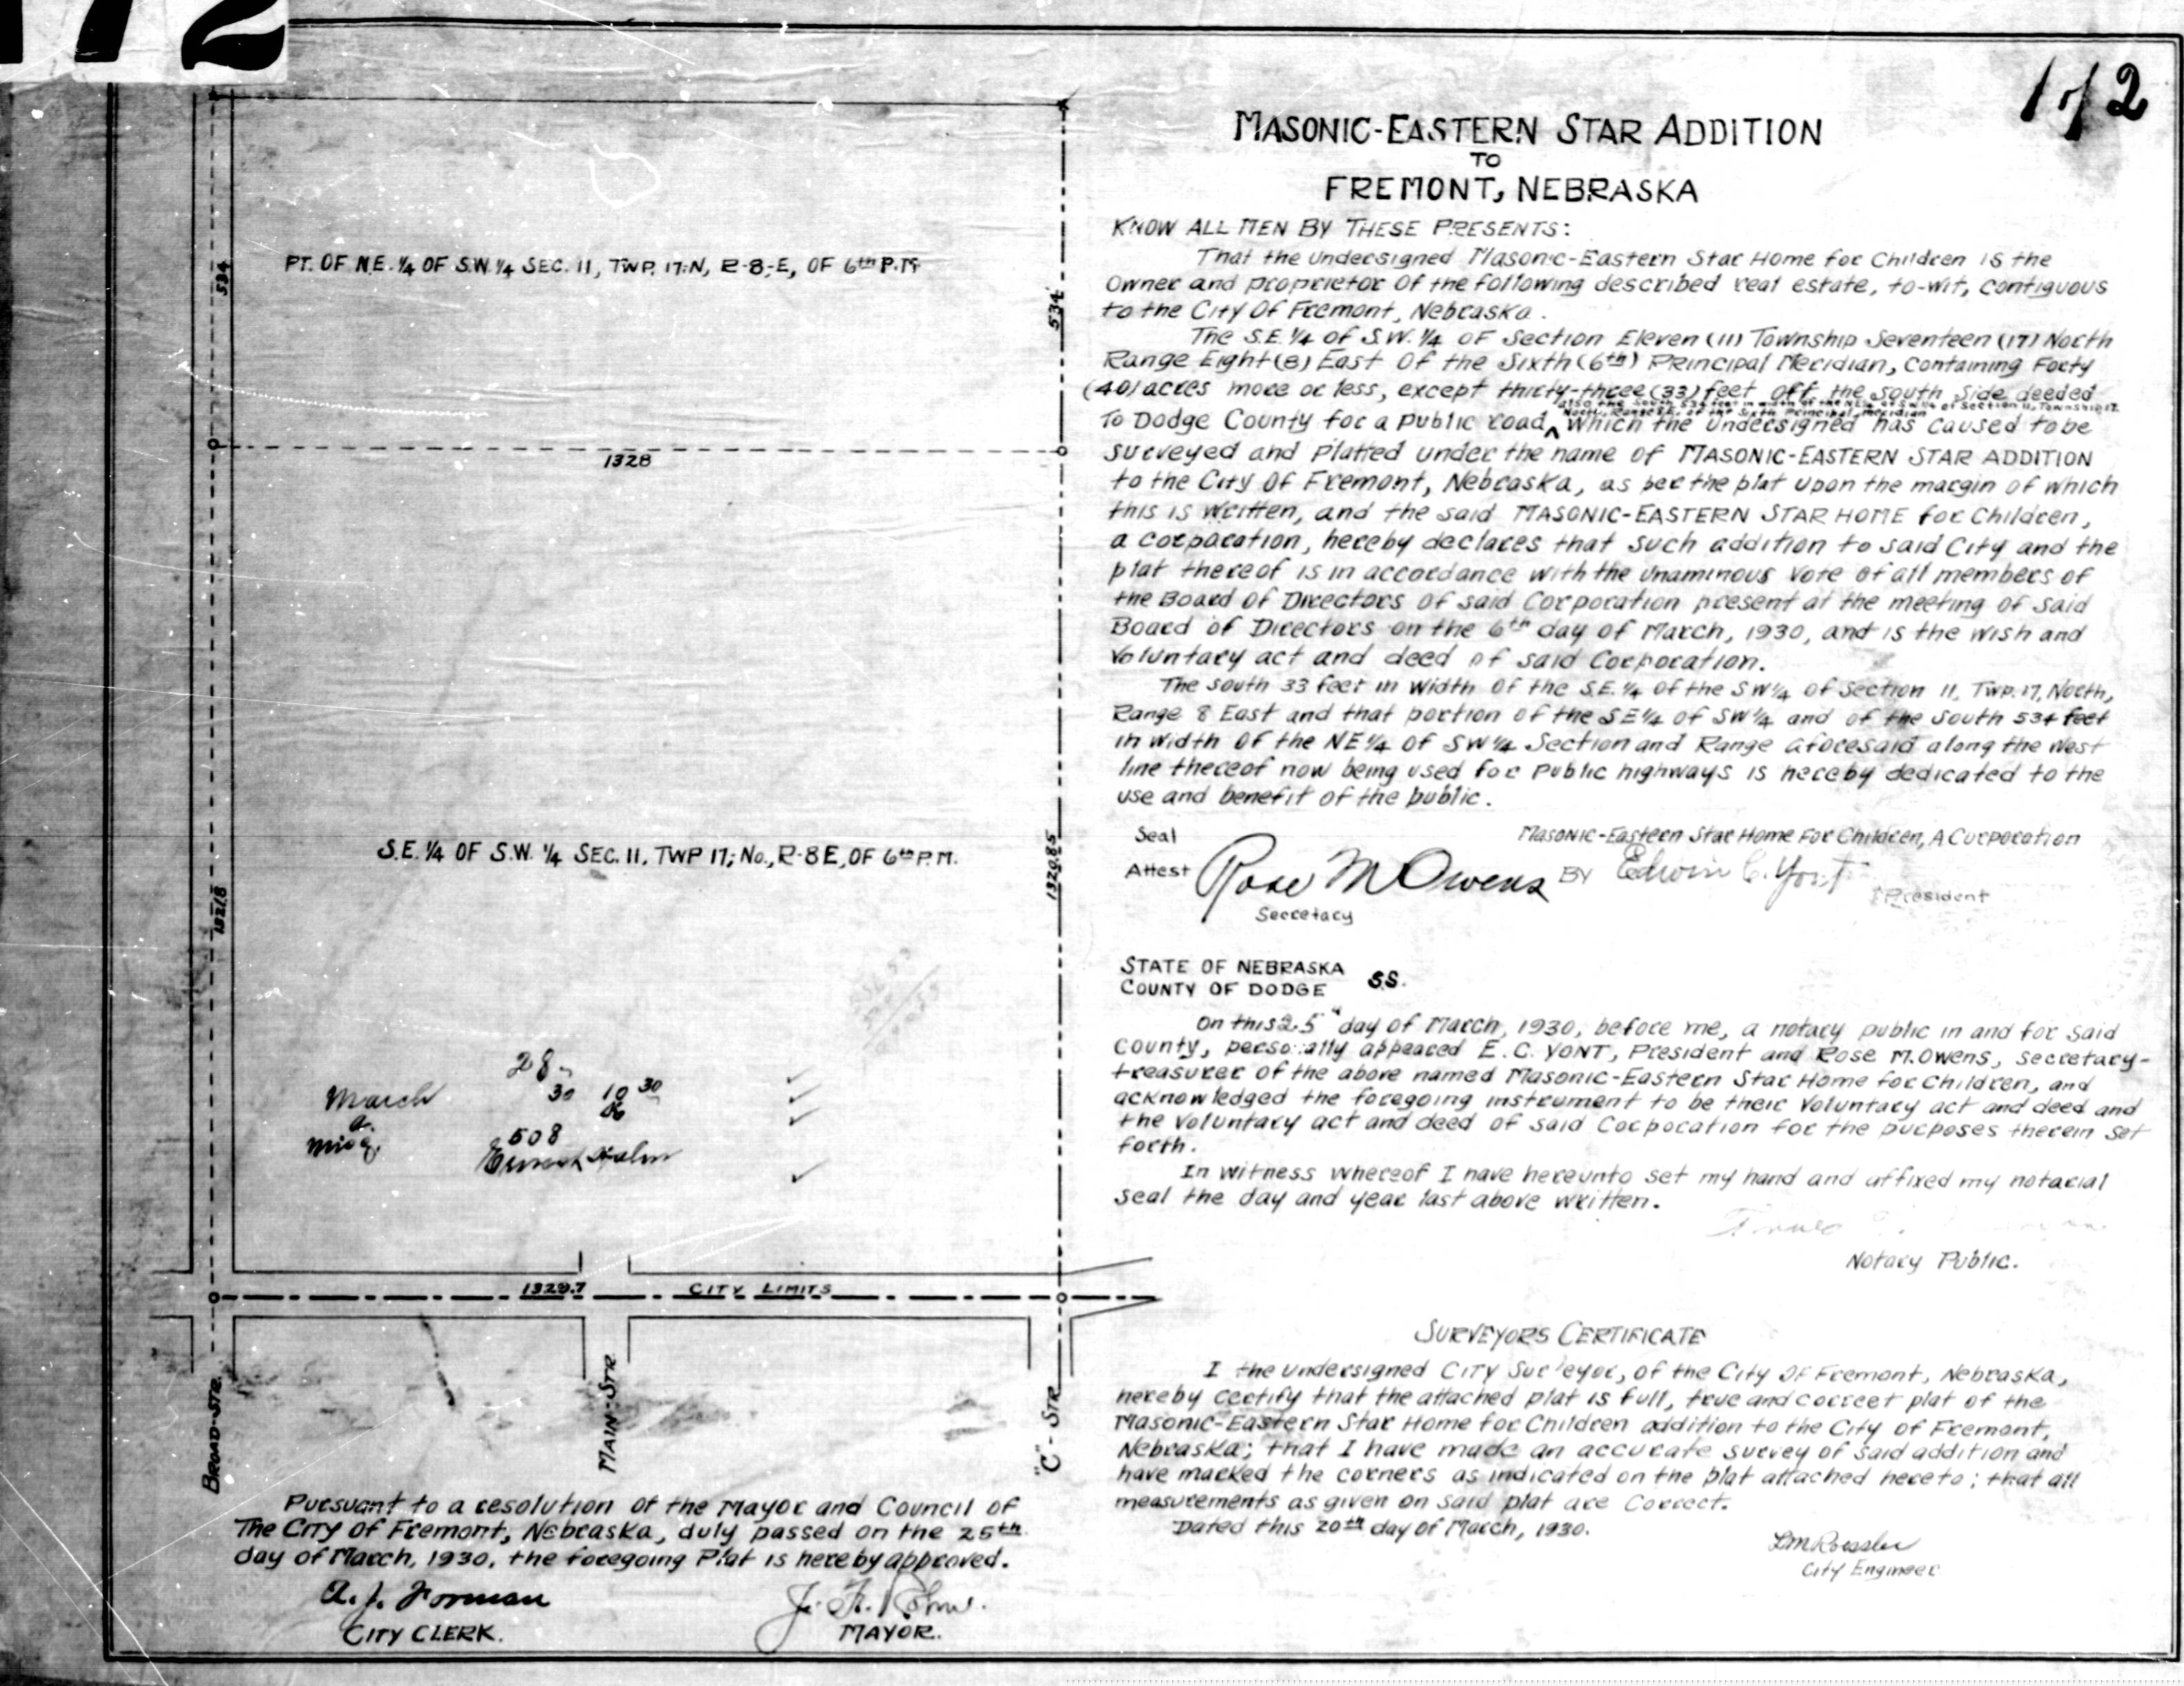 172
1 of 2
534
PT. OF N.E. 1/4 OF S.W. 1/4 SEC. 11, TWP. 17-N, R-8-E, OF 6th P.M.
534
1328
S.E. 1/4 OF S.W. 1/4 SEC. 11. TWP 17; No., R-8E, OF 6th P.M.
1321.8
1320.85
28
March 30 10 30
a.
Misc. 508
1328.7 CITY LIMITS
BROAD-STR.
MAIN-STR.
"C"-STR.
Pursuant to a resolution of the Mayor and Council of
The City of Fremont, Nebraska, duly passed on the 25th
day of March, 1930, the foregoing Plat is hereby approved.
A. J. Forman
CITY CLERK.
MAYOR.
MASONIC-EASTERN STAR ADDITION
TO
FREMONT, NEBRASKA
KNOW ALL MEN BY THESE PRESENTS:
That the undersigned Masonic-Eastern Star Home for Children is the
Owner and proprietor of the following described real estate, to-wit, contiguous
to the City Of Fremont, Nebraska.
The S.E. 1/4 of S.W. 1/4 OF Section Eleven (11) Township Seventeen (17) North
Range Eight (8) East Of the Sixth (6th) Principal Meridian, Containing Forty
(40) acres more or less, except thirty-three (33) feet off the south Side deeded
also the South 534 feet in width of the NE 1/4 of SW 1/4 of Section 11, Township 17
North, Range 8 E. of the Sixth Principal Meridian
To Dodge County for a public road, which the undersigned has caused to be
surveyed and Platted under the name of MASONIC-EASTERN STAR ADDITION
to the City Of Fremont, Nebraska, as per the plat upon the margin of which
this is written, and the said MASONIC-EASTERN STAR HOME for Children,
a corporation, hereby declares that such addition to said City and the
plat thereof is in accordance with the unaminous vote of all members of
the Board of Directors of said Corporation present at the meeting of said
Board of Directors on the 6th day of March, 1930, and is the wish and
voluntary act and deed of said Corporation.
The south 33 feet in width of the S.E. 1/4 of the SW 1/4 of Section 11, Twp. 17, North,
Range 8 East and that portion of the SE 1/4 of SW 1/4 and of the South 534 feet
in width of the NE 1/4 of SW 1/4 Section and Range aforesaid along the West
line thereof now being used for public highways is hereby dedicated to the
use and benefit of the public.
Seal Masonic-Eastern Star Home For Children, A Corporation
Attest Rose M Owens BY Edwin C. Yont
Secretary President
STATE OF NEBRASKA
COUNTY OF DODGE S.S.
On this 25" day of March, 1930, before me, a notary public in and for said
County, personally appeared E. C. YONT, President and Rose M. Owens, secretary-
treasurer of the above named Masonic-Eastern Star Home for Children, and
acknowledged the foregoing instrument to be their Voluntary act and deed and
the voluntary act and deed of said Corporation for the purposes therein set
forth.
In witness whereof I have hereunto set my hand and affixed my notarial
seal the day and year last above written.
Notary Public.
SURVEYORS CERTIFICATE
I the undersigned City Surveyor, of the City Of Fremont, Nebraska,
hereby certify that the attached plat is full, true and correct plat of the
Masonic-Eastern Star Home for Children addition to the City of Fremont,
Nebraska; that I have made an accurate survey of said addition and
have marked the corners as indicated on the plat attached hereto; that all
measurements as given on said plat are Correct.
Dated this 20th day of March, 1930.
LM Roessler
City Engineer